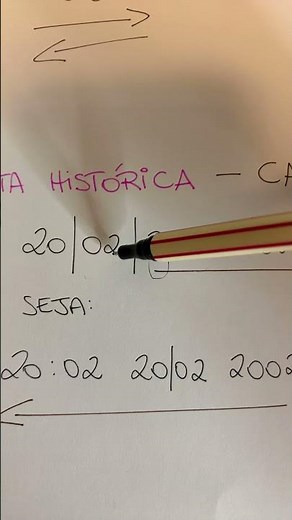 TA HISTÓRICA — CA
20|02|2
SEJA:
20:02 20|02 2002